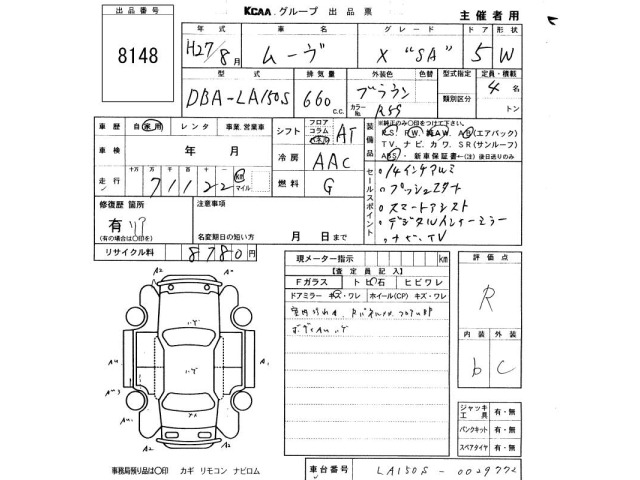 出品番号
8148
KCAA グループ 出品票
主催者用
年式 車名 グレード ドア 形状
H27/8月 ムーヴ X "SA" 5 W
型式 排気量 外装色 色替 型式指定 定員・積載
DBA-LA150S 660 c.c. ブラウン 4名
カラーNo. R59 類別区分 トン
車歴 自家用 レンタ 事業、営業車
シフト フロア コラム インパネ AT
装備品 ※純正のみ○印をつけて下さい。
P.S. P.W. 純A.W. A.B(エアバック)
T.V. ナビ. カワ. S.R(サンルーフ)
ABS・新車保証書←(注)後日送りのみ
車検 年 月
冷房 AAC
走行 十万 万 千 百 十 一
71122 km マイル
燃料 G
セールスポイント
・14インチアルミ
・プッシュスタート
・スマートアシスト
・デジタルインナーミラー
・ナビ、TV
修復歴 箇所
有 リア
(有の場合は○印を)
注意事項
名変期日の短い方 月 日まで
リサイクル料 8780円
現メーター指示 km
【査定員記入】
Fガラス トビ石 ヒビワレ
ドアミラー キズ・ワレ ホイール(CP) キズ・ワレ
評価点
R
内装 外装
b C
ジャッキ工具 有・無
パンクキット 有・無
スペアタイヤ 有・無
事務局預り品は○印 カギ リモコン ナビロム
車台番号 LA150S-0029772